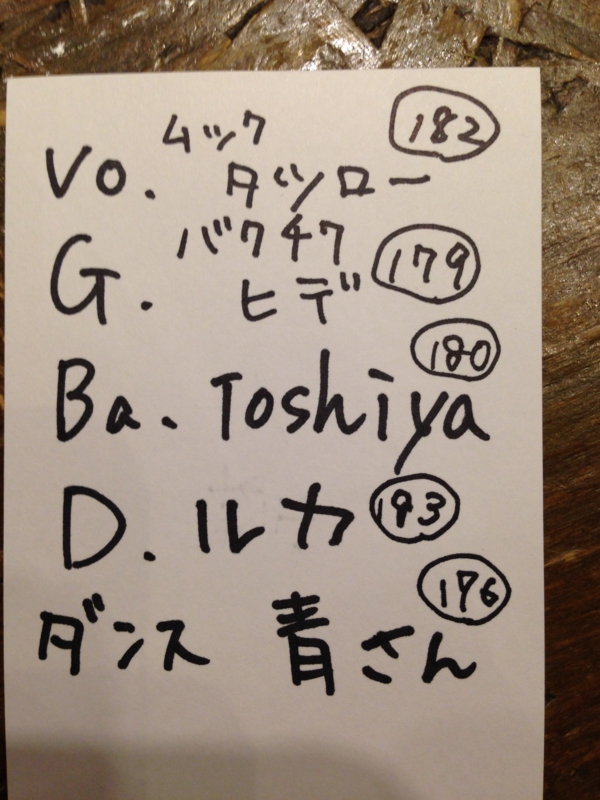 ムック 182
Vo. タツロー
バクチク 179
G. ヒデ
180
Ba. Toshiya
D. ルカ 193
176
ダンス 青さん